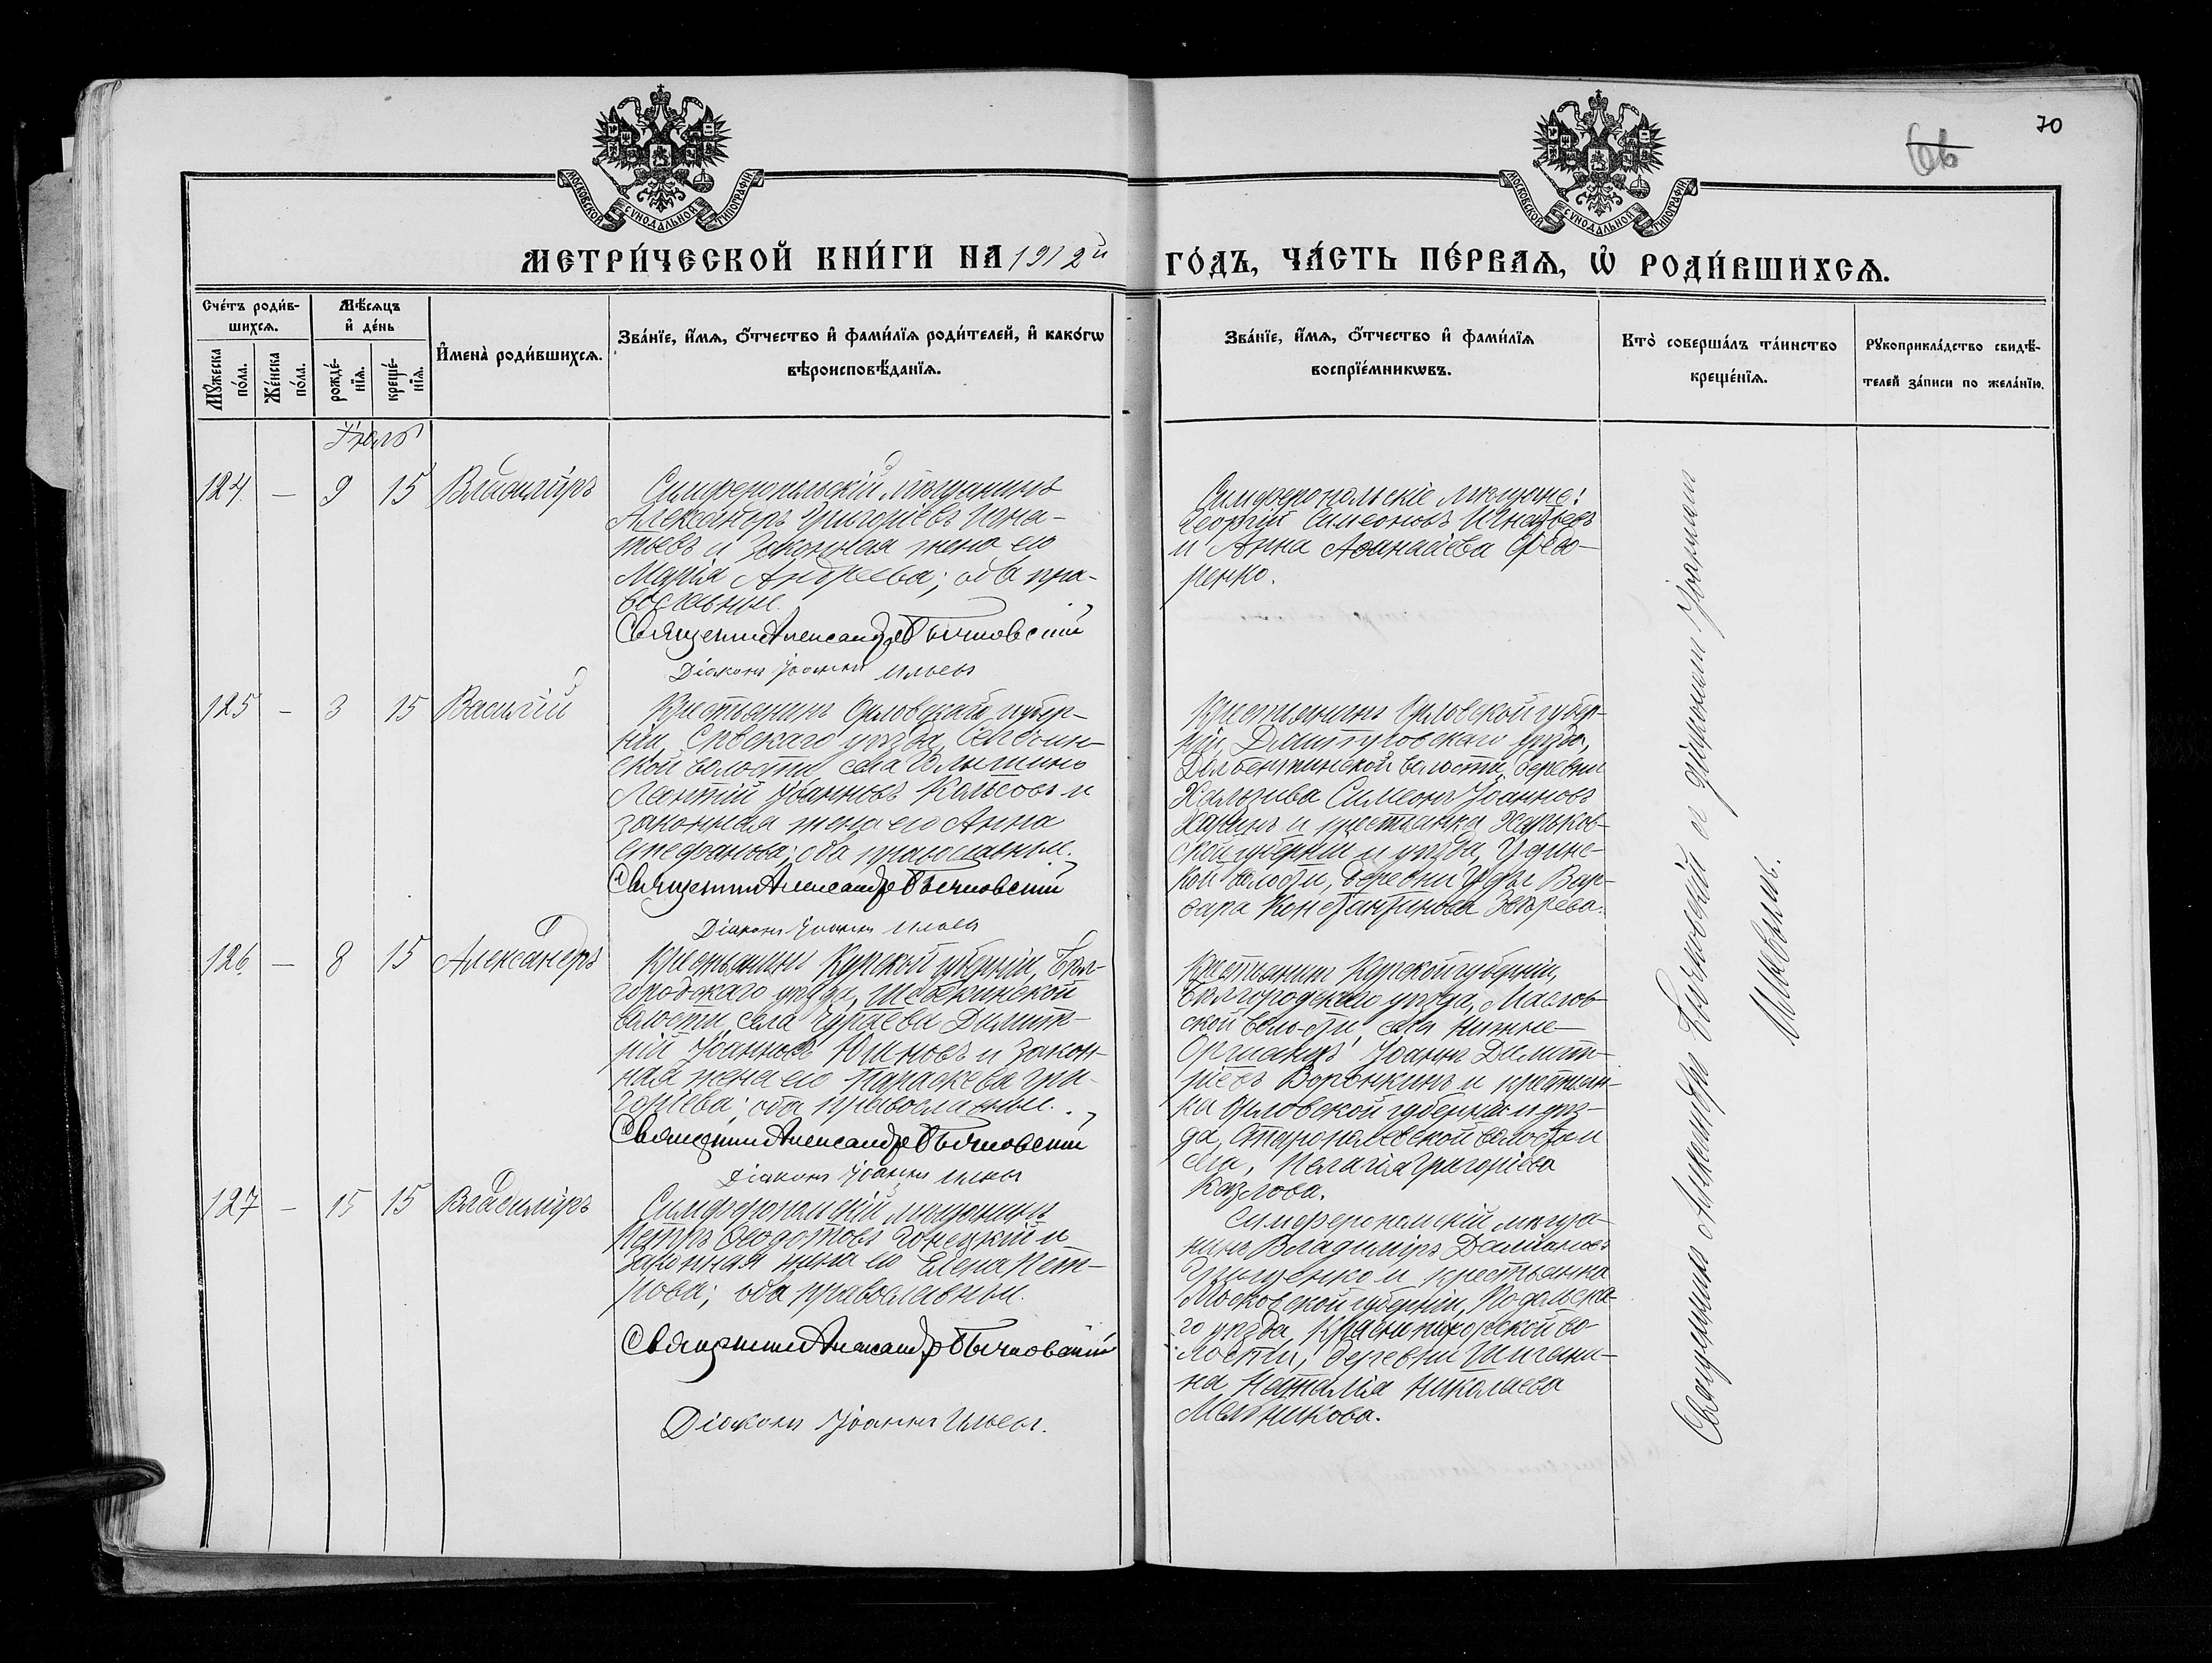 70
66
МОСКОВСКОЙ СѴНОДАЛЬНОЙ ТИПОГРАФІИ
МОСКОВСКОЙ СѴНОДАЛЬНОЙ ТИПОГРАФІИ
МЕТРИ́ЧЕСКОЙ КНИ́ГИ НА 1912й ГО́ДЪ, ЧА́СТЬ ПЕ́РВАѦ, Ѡ РОДИ́ВШИХСѦ.
Сче́тъ роди́в-
шихсѧ.
Мꙋжеска по́ла.
Же́нска по́ла.
Мѣ́сѧцъ
и де́нь
рожде́-
нїѧ.
креще́-
нїѧ.
И҆мена̀ роди́вшихсѧ.
Зва́нїе, и҆́мѧ, ѻ҆́тчество и҆ фами́лїѧ роди́телей, и҆ како́гѡ
вѣроисповѣ́данїѧ.
Зва́нїе, и҆́мѧ, ѻ҆́тчество и҆ фами́лїѧ
воспрїе́мникѡвъ.
Кто̀ соверша́лъ та́инство
креще́нїѧ.
Рꙋкоприкла́дство свидѣ́-
телей за́писи по жела́нїю.
Іюль
124. – 9 15 Владиміръ
Симферопольскій мѣщанинъ
Александръ Григоріевъ Игна-
тьевъ и законная жена его
Марія Андреева; оба пра-
вославные.
Священник Александр Бычковский
Діаконъ Іоаннъ Ильевъ
Симферопольскіе мѣщане:
Георгій Симеоновъ Игнатьевъ
и Анна Аѳанасіева Ѳедо-
ренко.
125 – 3 15 Василій
Крестьянинъ Орловской губер-
ніи, Сѣвскаго уѣзда,
ской волости села
Леонтій Іоанновъ Кольсовъ и
законная жена его Анна
Стефанова; оба православные.
Священник Александр Бычковский
Діаконъ Іоаннъ Ильевъ
Крестьянинъ Орловской губер-
ніи, Дмитровскаго уѣзда,
волости, деревни
Симеонъ Іоанновъ
и крестьянка Харьков-
ской губерніи и уѣзда, Удян-
кой волости, деревни Уды Вар-
вара Константинова
126 – 8 15 Александръ
Крестьянинъ Курской губерніи, Бѣл-
городскаго уѣзда, Шебекинской
волости, села Чураева Димит-
рій Іоанновъ Юшновъ и закон-
ная жена его Параскева Гри-
горіева; оба православные.
Священник Александр Бычковский
Діаконъ Іоаннъ Ильевъ
Крестьянинъ Курской губерніи,
Бѣлгородскаго уѣзда, Маслов-
ской волости, села Нижне-
Іоаннъ Димит-
ріевъ Воронкинъ и крестьян-
ка Орловской губерніи и уѣз-
да, волости и
села, Пелагія Григоріева
Казлова.
127 – 15 15 Владиміръ
Симферопольскій мѣщанинъ
Петръ Ѳеодотовъ Донецкій и
законная жена его Елена Пет-
рова; оба православные.
Священник Александр Бычковский
Діаконъ Іоаннъ Ильевъ.
Симферопольскій мѣща-
нинъ Владиміръ Даміановъ
Грищенко и крестьянка
Московской губерніи, Подольска-
го уѣзда, Краснопахорской во-
лости, деревни
на Наталія Николаева
Мельникова.
Священникъ Александръ Бычковскій и діаконъ Іоаннъ
Ильевымъ.